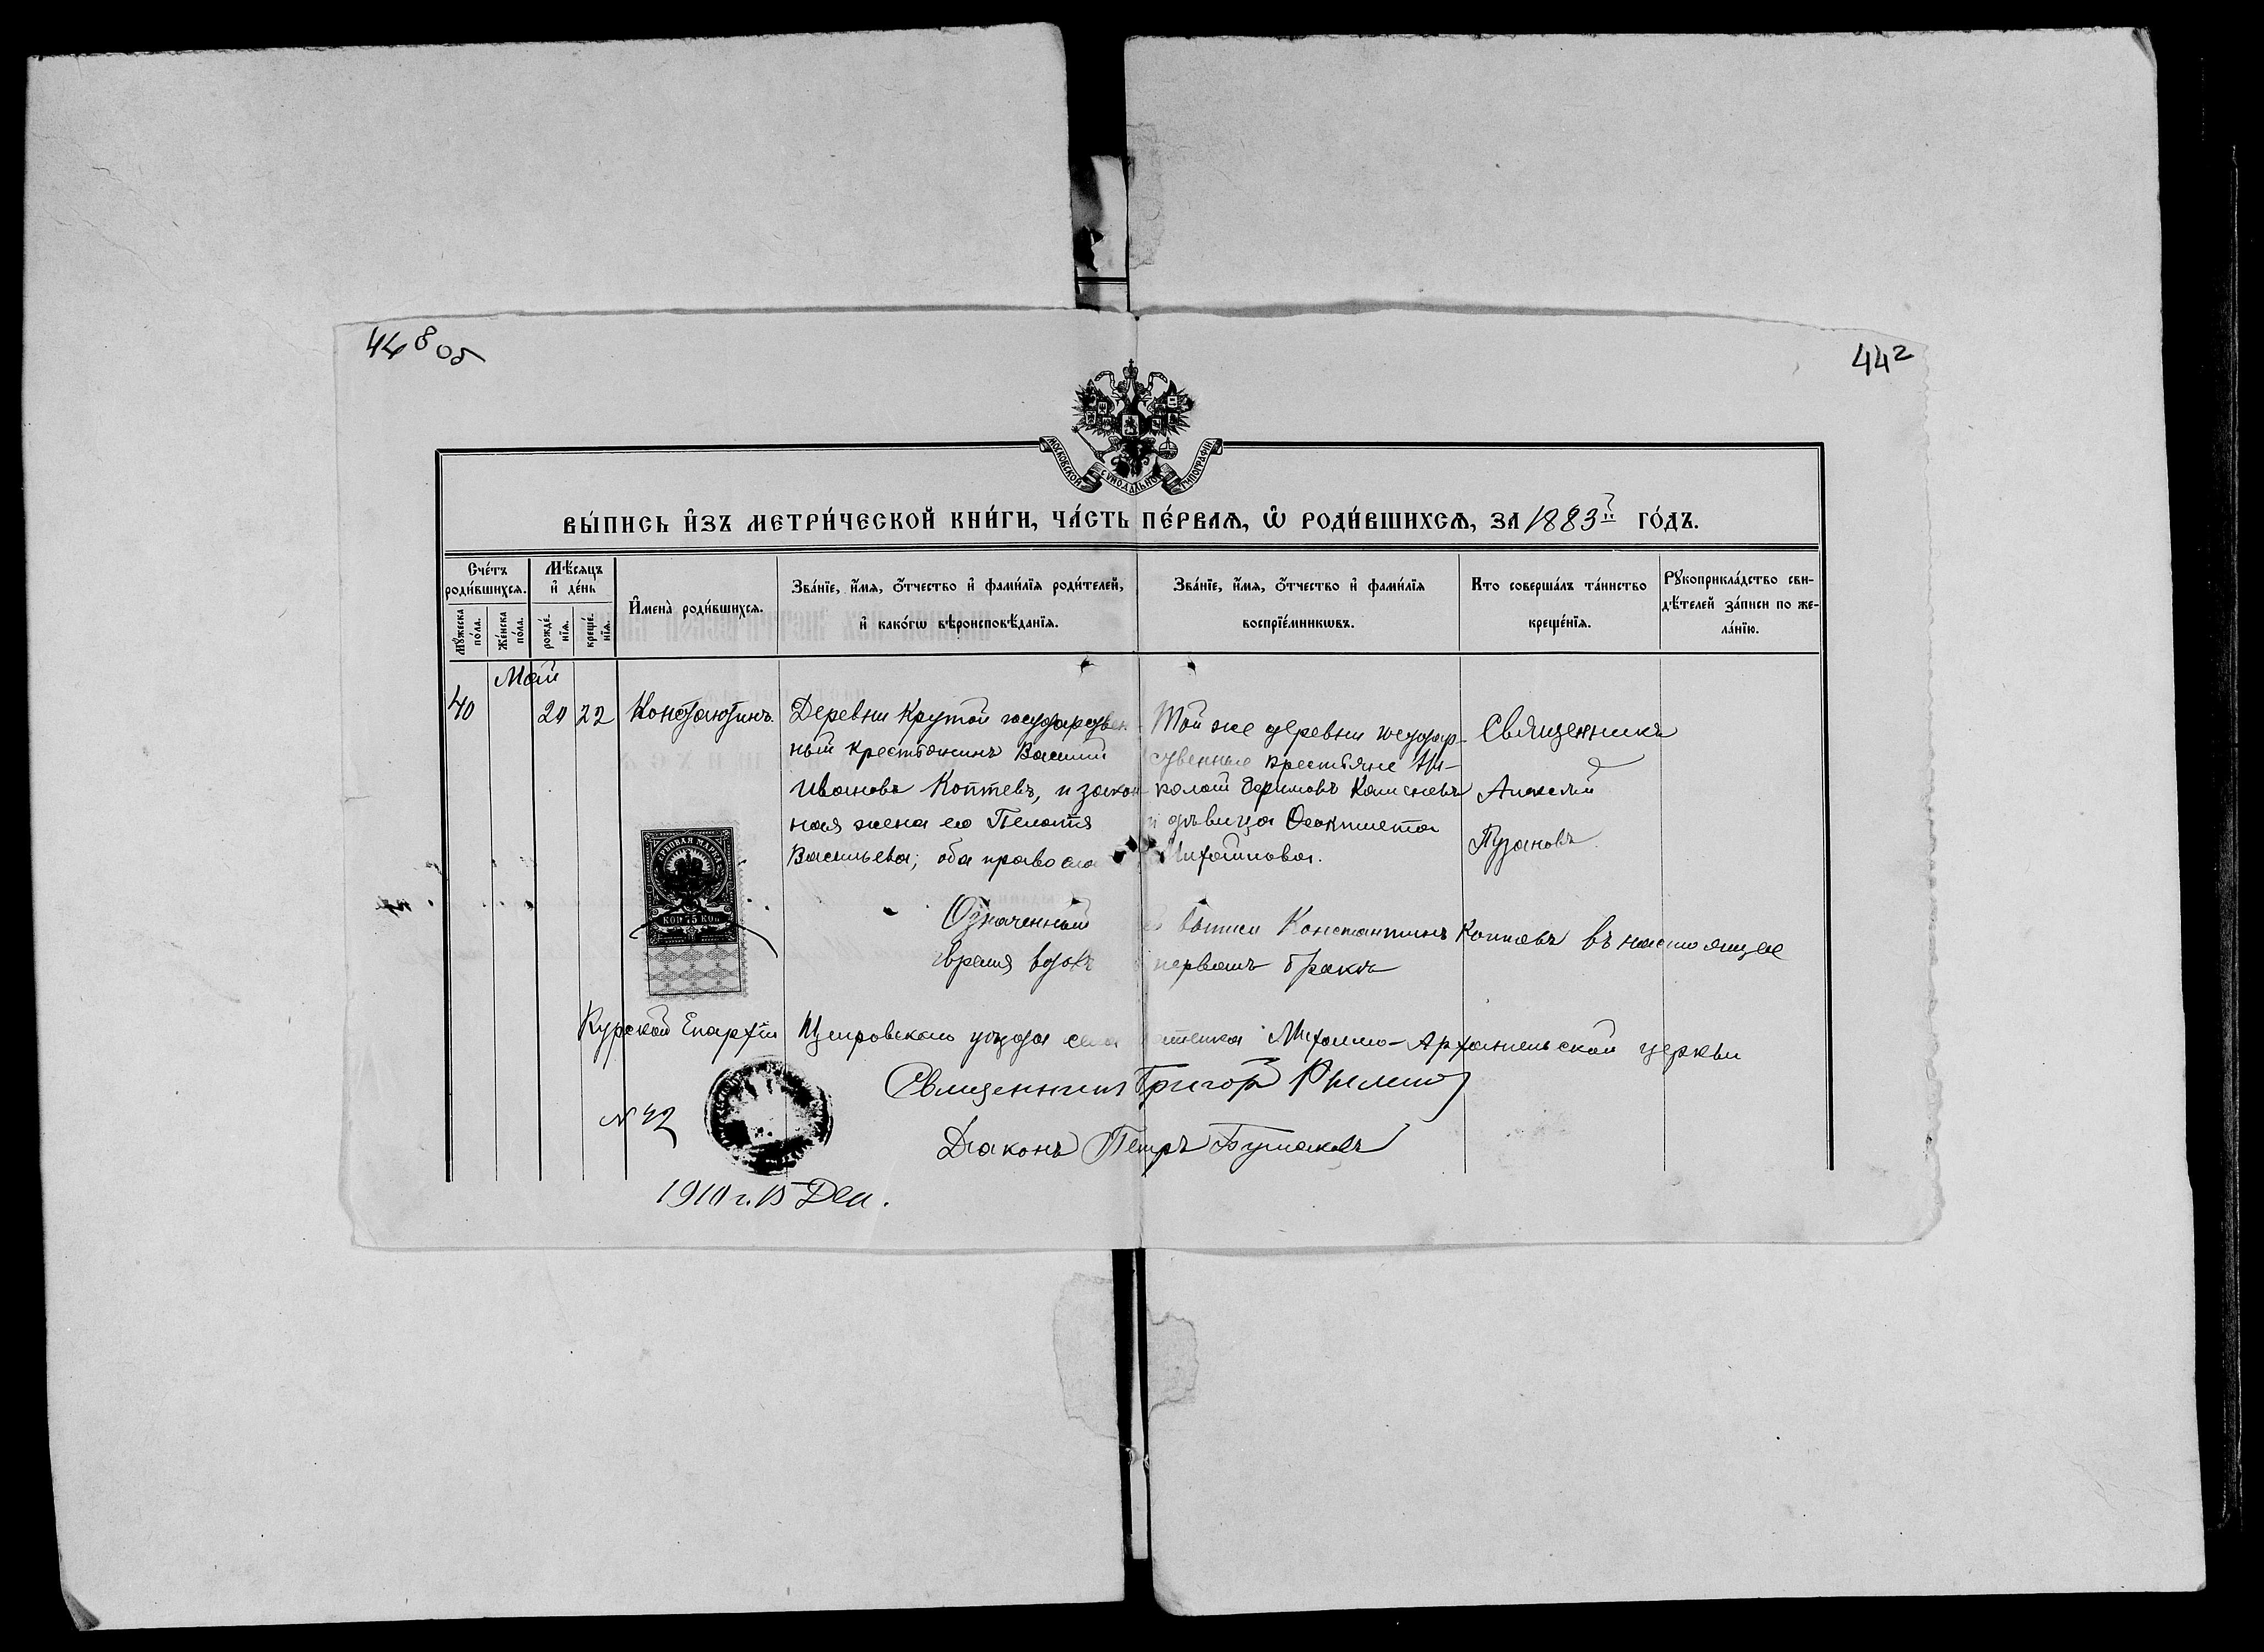 44 8 об
44 2
МОСКОВСКОЙ СѴНОДАЛЬНОЙ ТИПОГРАФІИ
ВЫ́ПИСЬ И҆ЗЪ МЕТРИ́ЧЕСКОЙ КНИ́ГИ, ЧА́СТЬ ПЕ́РВАѦ, Ѽ РОДИ́ВШИХСѦ, ЗА 1883й ГО́ДЪ.
Сче́тъ роди́вшихсѧ.
Мѣ́сѧцъ и҆ де́нь
Мꙋ́жеска по́ла.
Же́нска по́ла.
рожде́нїѧ.
креще́нїѧ.
И҆мена̀ роди́вшихсѧ.
Зва́нїе, и҆́мѧ, ѻ҆́тчество и҆ фами́лїѧ роди́телей,
и҆ како́гѡ вѣроисповѣ́данїѧ.
Зва́нїе, и҆́мѧ, ѻ҆́тчество и҆ фами́лїѧ
воспрїе́мникѡвъ.
Кто соверша́лъ та́инство
креще́нїѧ.
Рꙋкоприкла́дство сви-
дѣ́телей за́писи по же-
ла́нїю.
Май
40 20 22 Константинъ.
Деревни Крутой государствен-
ный крестьянинъ Василий
Ивановъ Коптевъ, и закон-
ная жена его Пелагія
Васильева; оба правосла
Той же деревни государ-
ственные крестьяне Ни-
колай Ефимовъ
и дѣвица Феоктиста
Михайлова.
Священникъ
Алексѣй
Пузановъ
ГЕРБОВАЯ МАРКА
КОП 75 КОП
Означенный въ выписи Константинъ Коптевъ въ настоящее
время въ первомъ бракѣ
Курской Епархіи Щигровскаго уѣзда села Михаило-Архангельской церкви
Священникъ Григорій
№ 42
Діаконъ Петръ
1910 г. 15 Дек.